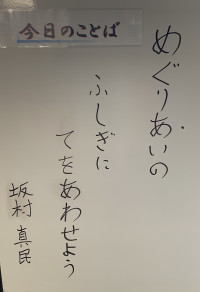 今日のことば
めぐりあいの
ふしぎに
てをあわせよう
坂村 真民